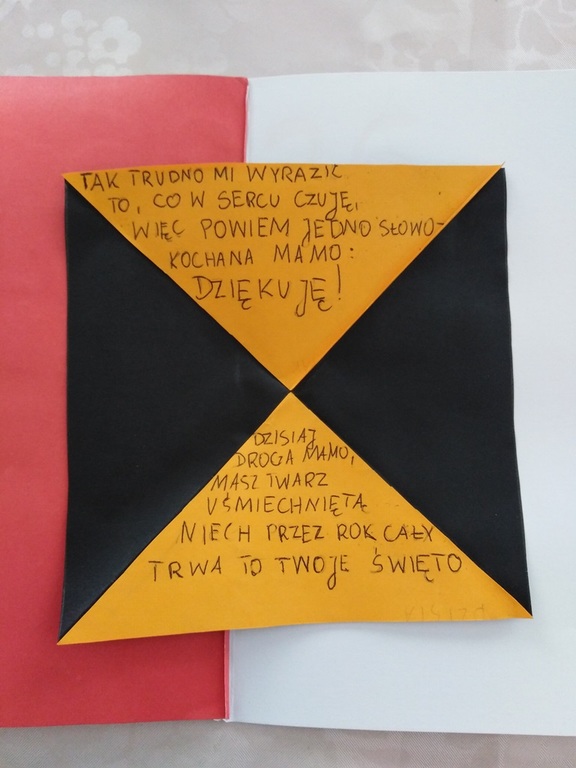 TAK TRUDNO MI WYRAZIĆ
TO, CO W SERCU CZUJĘ,
WIĘC POWIEM JEDNO SŁOWO-
KOCHANA MAMO:
DZIĘKUJĘ!
DZISIAJ
DROGA MAMO,
MASZ TWARZ
UŚMIECHNIĘTĄ
NIECH PRZEZ ROK CAŁY
TRWA TO TWOJE ŚWIĘTO